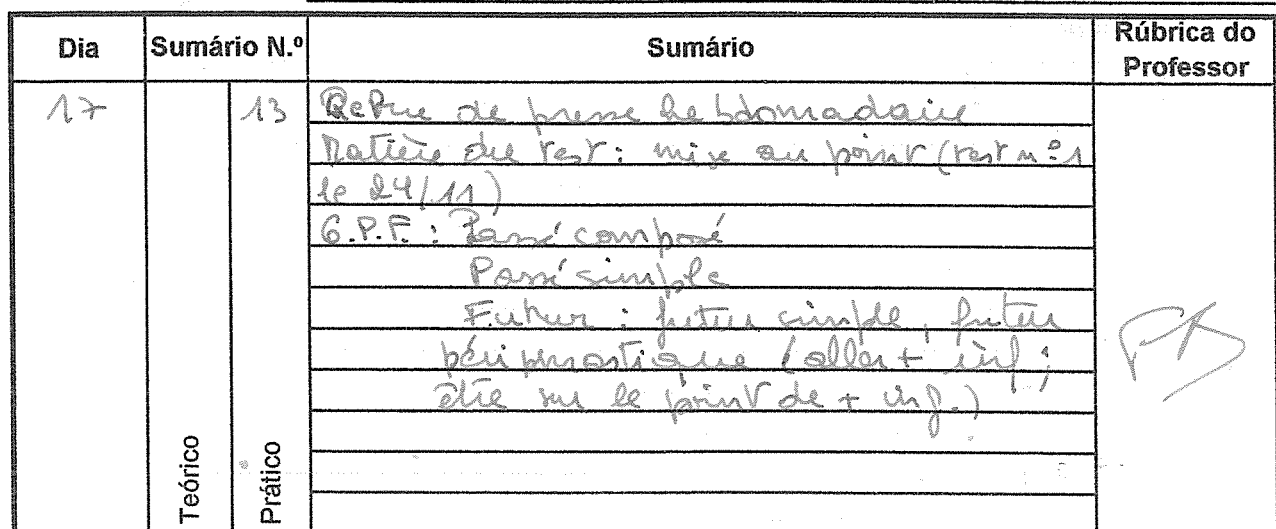 Dia Sumário N.º Sumário Rúbrica do Professor
17 13 Revue de presse hebdomadaire
Matière du test : mise au point (test nº1
le 24/11)
G.P.F. : Passé composé
Passé simple
Futur : futur simple, futur
périphrastique (aller + inf ;
être sur le point de + inf.)
Teórico Prático